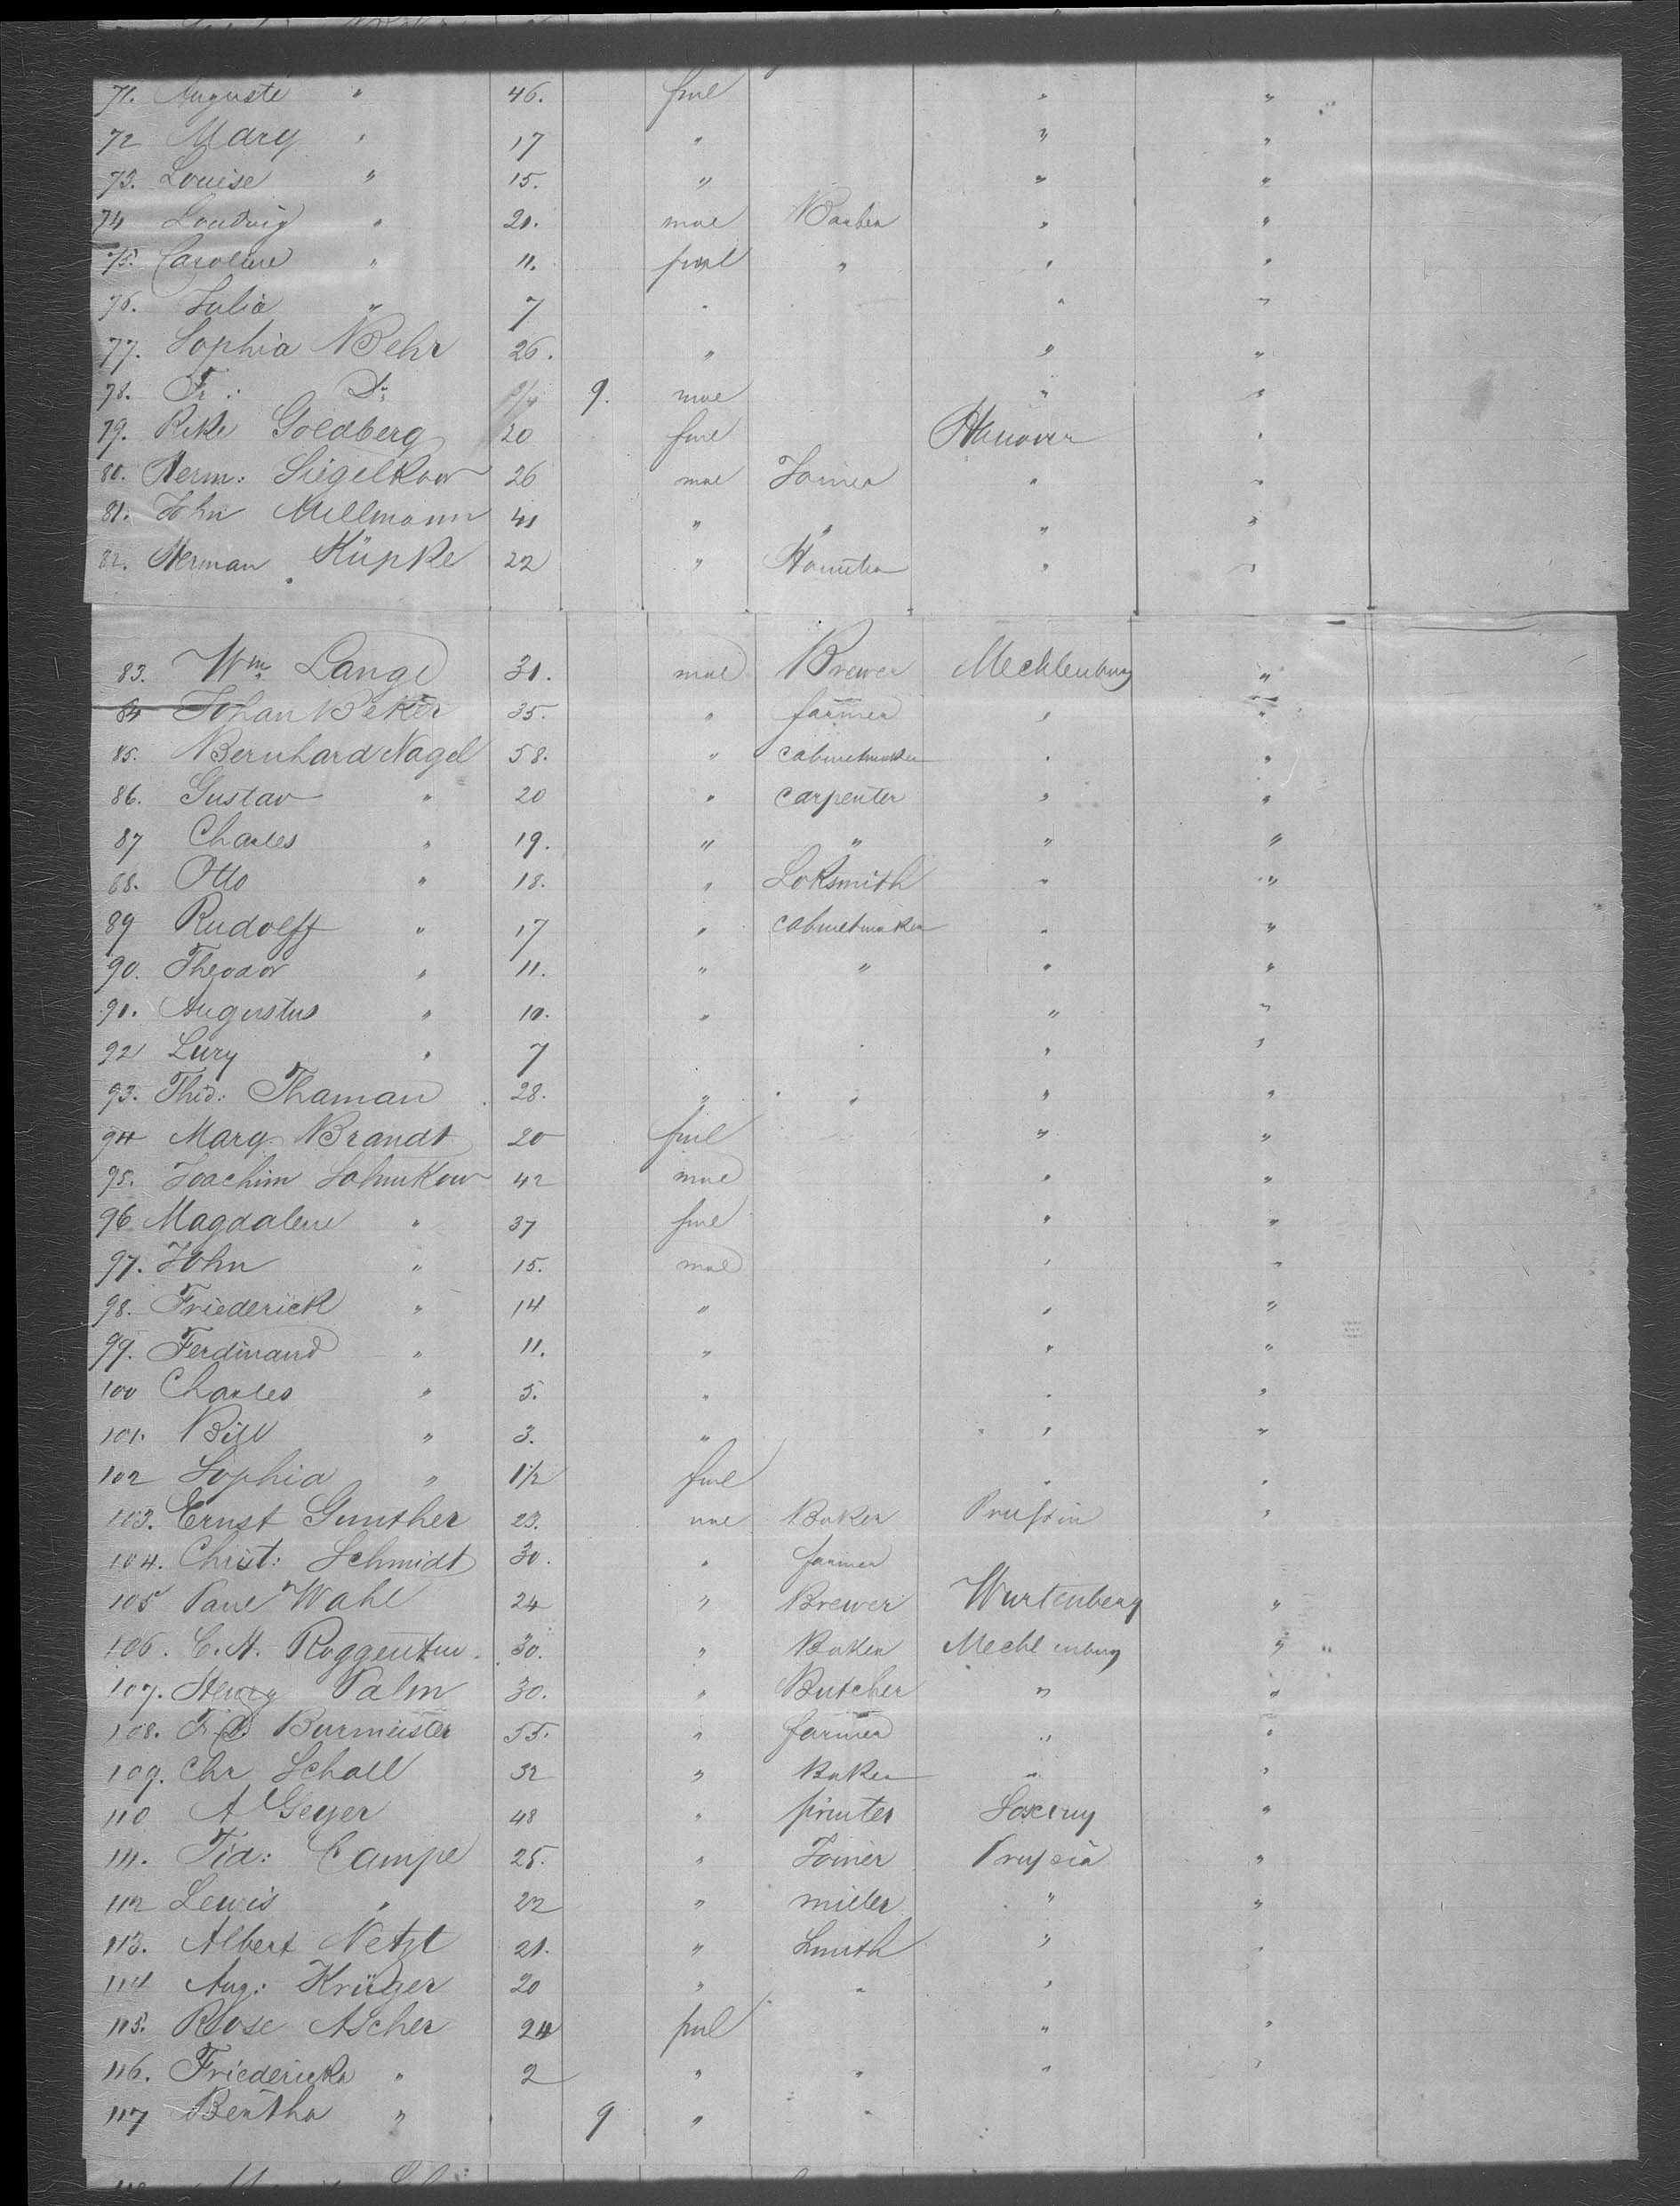 71. Auguste " 46. fml " "
72 Mary " 17 " " "
73. Louise " 15. " " "
74 Loudwig " 21. mae " "
75. Caroline " 11. fml " " "
76. Julia " 7 " " "
77. Sophia Behr 26. " " "
78. Fr: Do 9. mae " "
79. Rike Goldberg 20 fml Hanover "
80. Herm: Siegelkow 26 mae Joiner " "
81. John Mellmann 41 " " " "
82. Herman Küpke 22 " " "
83. Wm Lange 31. mae Brewer Mecklenburg "
84 Johan Beker 35. " farmer " "
85. Bernhard Nagel 58. " cabinetmaker " "
86. Gustav " 20 " carpenter " "
87 Charles " 19. " " " "
88. Otto " 18. " Loksmith " "
89 Rudolff " 17 " cabinetmaker " "
90. Theodor " 11. " " " "
91. Augustus " 10. " " "
92 Lury " 7 " "
93. Thd: Thaman 28. " " " "
94 Marg. Brandt 20 fml " "
95. Joachim 42 mae " "
96 Magdalene " 37 fml " "
97. John " 15. mae " "
98. Friederick " 14 " " "
99. Ferdinand " 11. " " "
100 Charles " 5. " " "
101. Bill " 3. " " "
102 Sophia " 1½ fml " "
103. Ernst Gunther 23. mae Baker Prussia "
104. Christ: Schmidt 30. " farmer
105 Paul Wahl 24 " Brewer Wurtenberg "
106. C. H. Roggentin 30. " Baker Mechlenburg "
107. Henry Palm 30. " Butcher " "
108. Fr. Burmeister 55. " farmer " "
109. Chr Schall 32 " Baker " "
110 A Geyer 48 " printer Saxeny "
111. Fid: Campe 25. " Joiner Prussia "
112 Lewis " 22 " miller " "
113. Albert Netzt 21. " Smith " "
114 Aug: Krüger 20 " " "
115. Rose Ascher 24 fml " "
116. Friedericka " 2 " " " "
117 Bertha " 9 " "